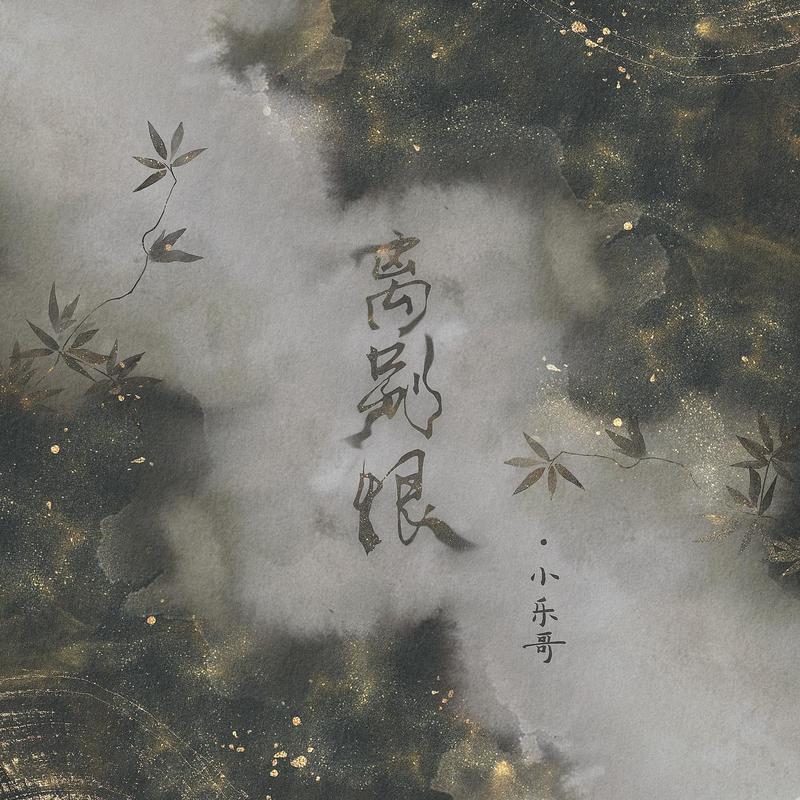 离别恨
·小乐哥